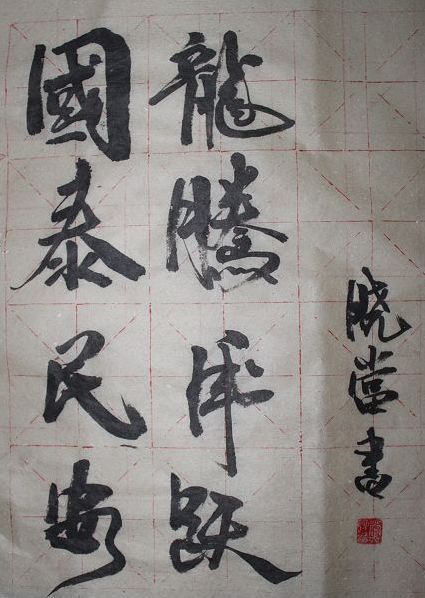 國泰民安
龍騰虎跃
晓當書